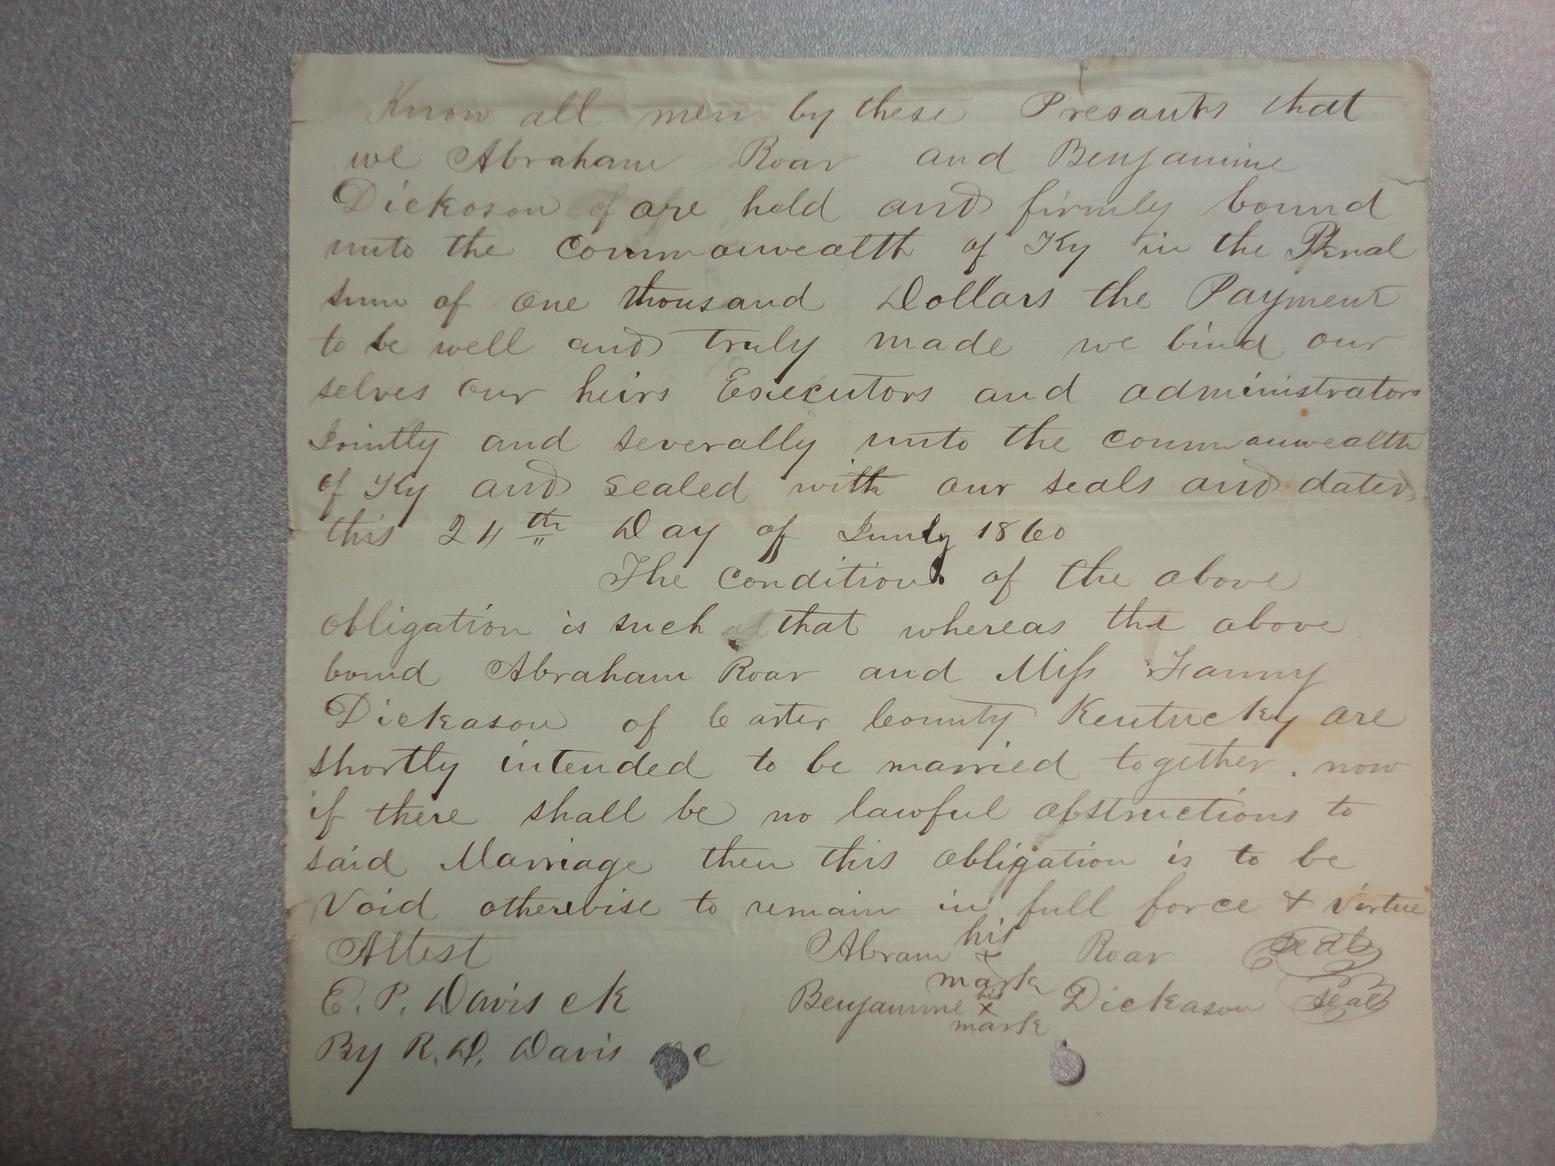 Know all men by these Presants that
we Abraham Roar and Benjamine
Dickoson of are held and firmly bound
unto the Commonwealth of Ky in the Penal
sum of one thousand Dollars the Payment
to be well and truly made we bind our
selves our heirs Executors and administrators
Jointly and severally unto the commonwealth
of Ky and sealed with our seals and dated
this 24th Day of July 1860
The condition of the above
obligation is such that whereas the above
bound Abraham Roar and Miss Fanny
Dickason of Carter County Kentucky are
shortly intended to be married together. now
if there shall be no lawful obstructions to
said Marriage then this obligation is to be
Void otherwise to remain in full force & virtue
Attest Abram his x mark Roar seal
E. P. Davis ck Benjamine his x mark Dickason seal
By R. D. Davis